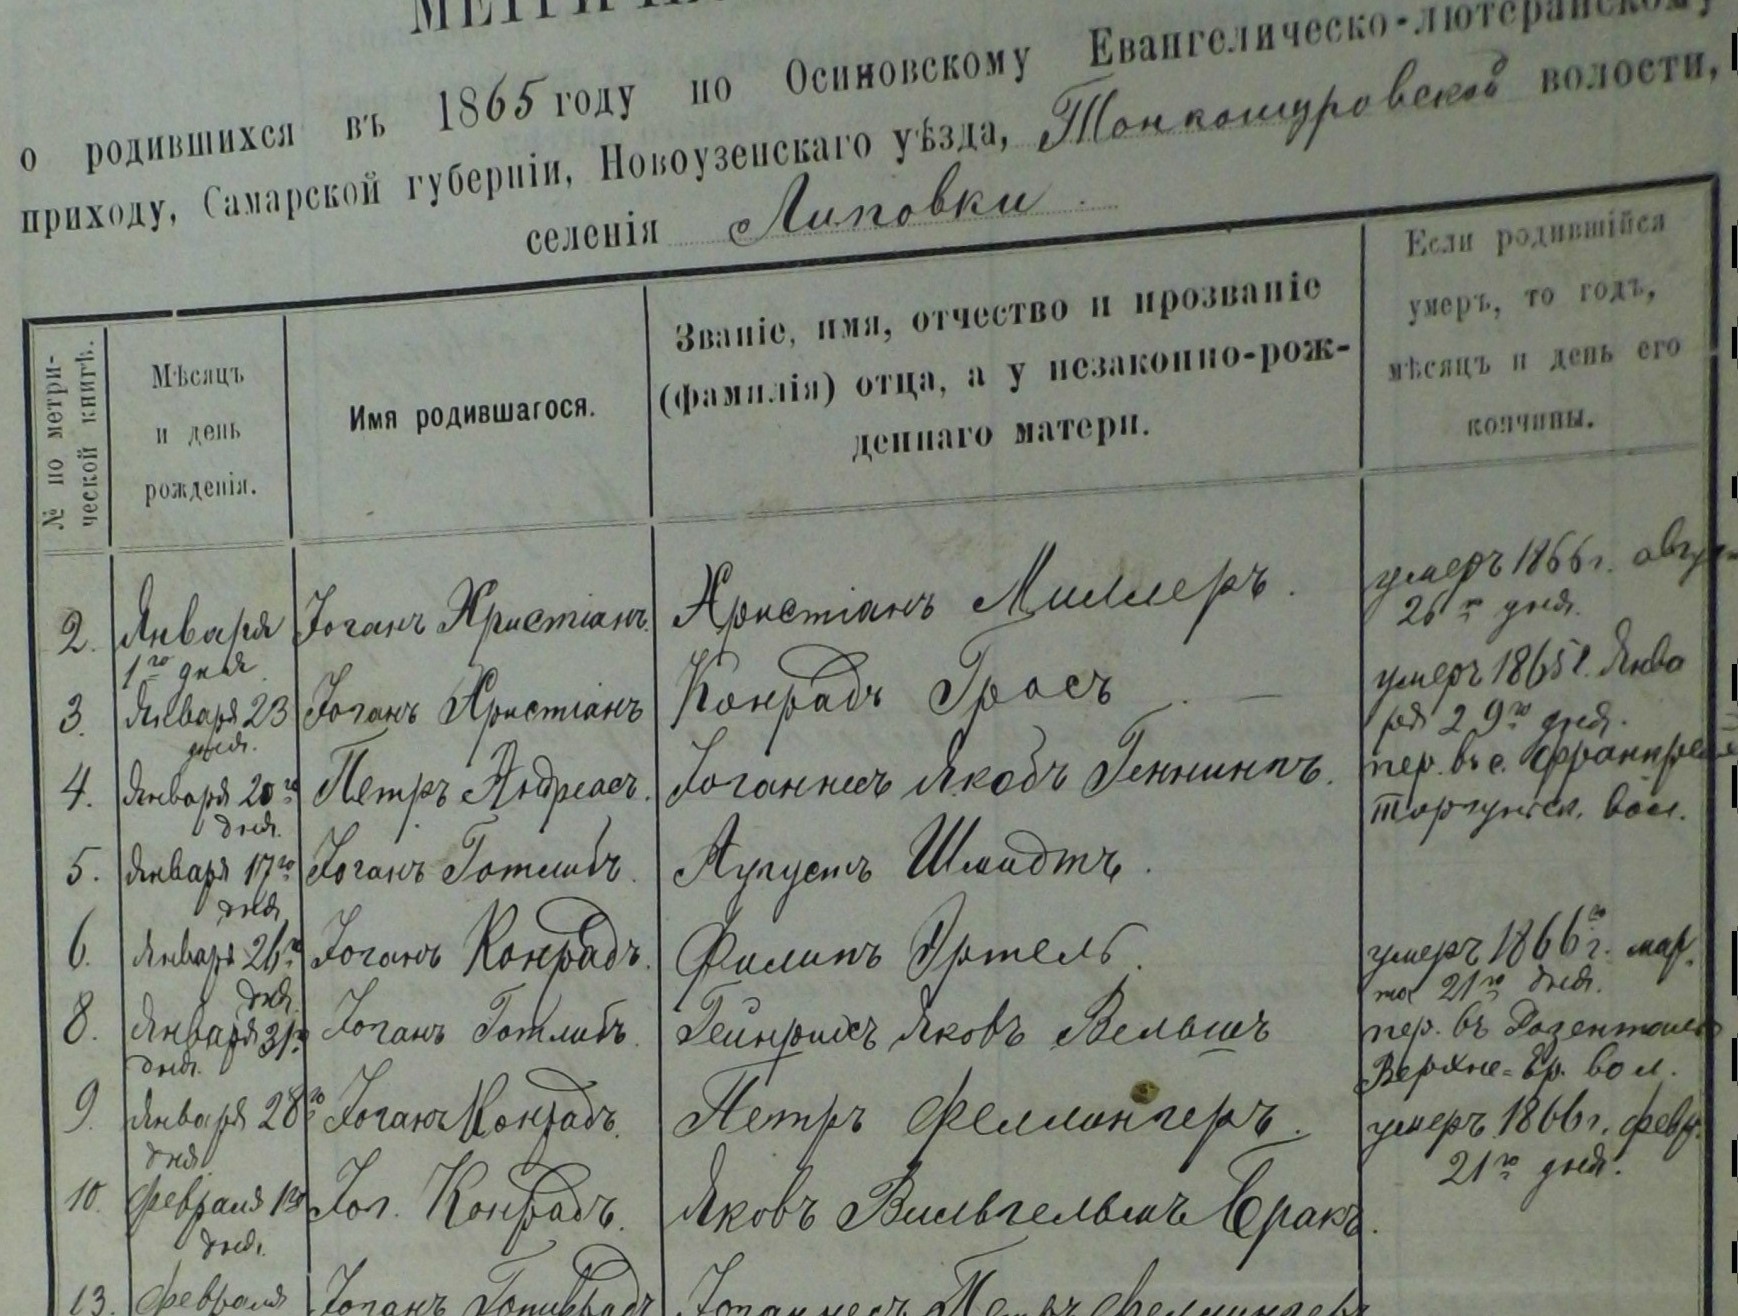 о родившихся въ 1865 году по Осиновскому Евангелическо-лютеранскому
приходу, Самарской губерніи, Новоузенскаго уѣзда, Тонкошуровской волости,
селенія Липовки.
№ по метрической книгѣ.
Мѣсяцъ
и день
рожденія.
Имя родившагося.
Званіе, имя, отчество и прозваніе
(фамилія) отца, а у незаконно-рож-
деннаго матери.
Если родившійся
умеръ, то годъ,
мѣсяцъ и день его
кончины.
2. Января Іоганъ Христіанъ Христіанъ Миллеръ. умеръ 1866 г.
1го дня. 26го дня.
3. Января 23 Іоганъ Христіанъ Конрадъ Гросъ. — умеръ 1865 г. Янва
дня. ря 29го дня.
4. Января 20го Петръ Андреасъ. Іоганнесъ Якобъ Геннингъ. пер. въ с.
дня. Торгунск. вол.
5. Января 17го Іоганъ Готлибъ. Аугустъ Шмидтъ.
дня
6. Января 26го Іоганъ Конрадъ. Филипъ Эртель. умеръ 1866 г. мар-
дня. та 21го дня.
8. Января 31го Іоганъ Готлибъ. Гейнрихъ Яковъ Вельшъ пер. въ Розенталь
дня. Верхне-Ер. вол.
9. Января 28го Іоганъ Конрадъ. Петръ Феллингеръ. умеръ 1866 г. февр.
дня. 21го дня.
10. Февраля 1го Іог. Конрадъ. Яковъ Вильгельмъ Бракъ.
дня.
13. Февраля Іоганъ Іоганнесъ Петръ Феллингеръ